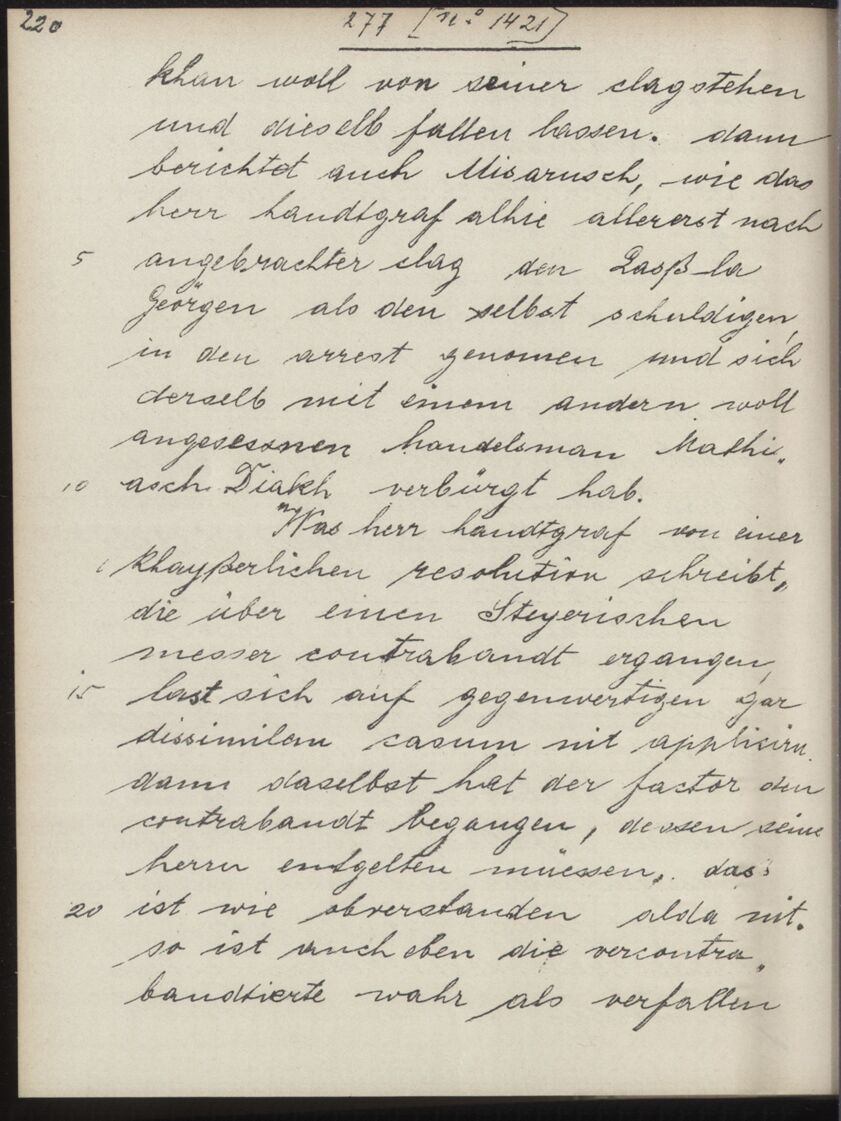 220
277 [nº 1421]
khan woll von seiner clag stehen
und dieselb fallen lassen. dann
berichtet auch Misarusch, wie das
herr handtgraf alhie allererst nach
5 angebrachter clag den Lasß-la
Geörgen als den selbst schuldigen,
in den arrest genomen und sich
derselb mit einem andern woll
angesessnen handelsman Mathi„
10 asch Diakh verbürgt hab.
"Was herr handtgraf von einer
khayßerlichen resolution schreibt„
die über einen Steyerischen
messer contrabandt ergangen,
15 last sich auf gegenwertigen gar
dissimilem casum nit applicirn.
dann daselbst hat der factor den
contrabandt begangen, dessen seine
herrn entgelten müessen. das
20 ist wie obverstanden alda nit.
so ist auch eben die vercontra„
bandtierte wahr als verfallen